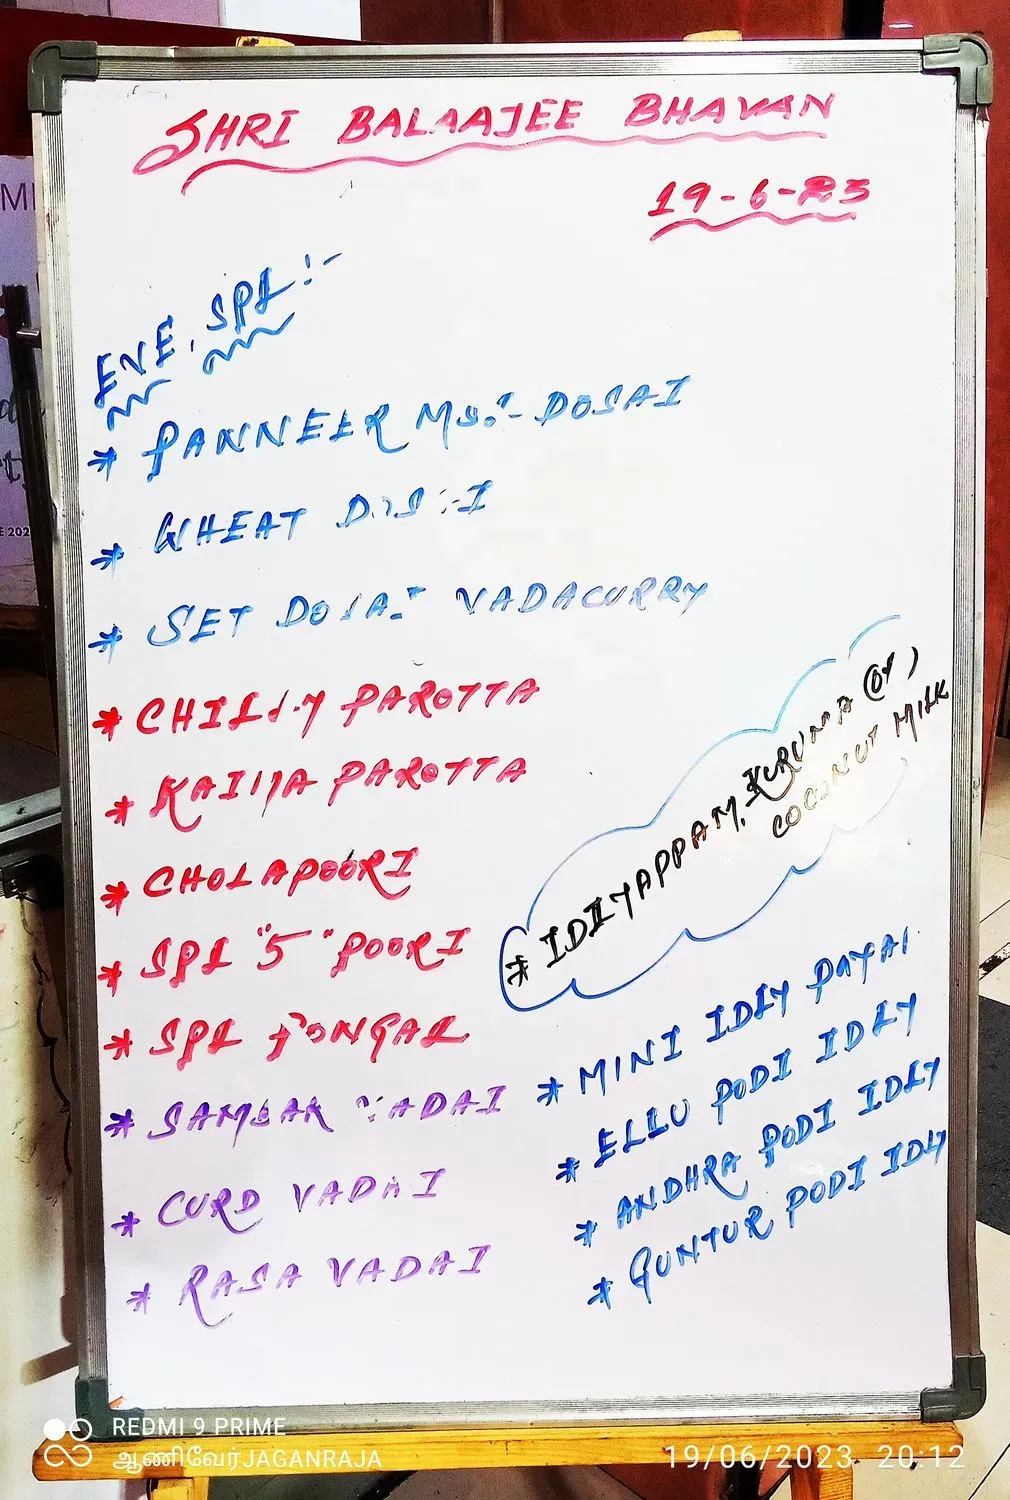 SHRI BALAAJEE BHAVAN
19-6-23
EVE. SPL :-
* PANNEER MS:- DOSAI
* WHEAT DOSAI
* SET DOSAI VADACURRY
* CHILLY PAROTTA
* KAIMA PAROTTA
* CHOLAPOORI
* SPL "5" POORI
* SPL PONGAL
* SAMBAR VADAI
* CURD VADAI
* RASA VADAI
* IDIYAPPAM, KURUMA (or)
COCONUT MILK
* MINI IDLY
* ELLU PODI IDLY
* ANDHRA PODI IDLY
* GUNTUR PODI IDLY
REDMI 9 PRIME
ஆணிவேர்JAGANRAJA
19/06/2023 20:12